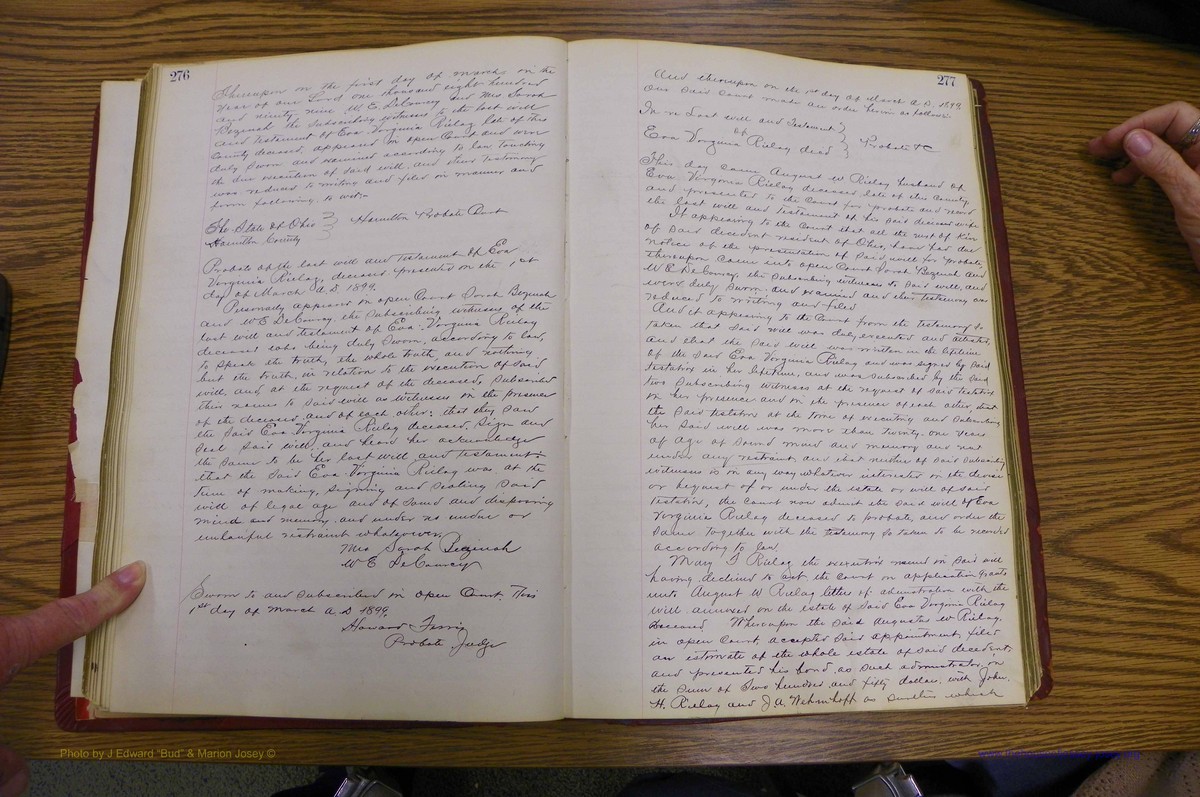 276
Thereupon on the first day of March in the
Year of our Lord one thousand eight hundred
and ninety nine W. E. DeCourcy and Mrs Sarah
the subscribing witnesses to the last will
and Testament of Eva Virginia Rielag late of this
County deceased, appeared in open Court and were
duly sworn and examined according to law touching
the due execution of said will, and their testimony
was reduced to writing and filed in manner and
form following, to wit:-
The State of Ohio } Hamilton Probate Court
Hamilton County
Probate of the last will and testament of Eva
Virginia Rielag, deceased presented on the 1st
day of March A.D. 1899.
Personally appeared in open Court Sarah
and W E DeCourcy, the subscribing witnesses of the
last will and testament of Eva Virginia Rielag
deceased who being duly sworn, according to law,
to speak the truth, the whole truth, and nothing
but the truth, in relation to the execution of said
will, and at the request of the deceased, subscribed
their names to said will as witnesses in the presence
of the deceased, and of each other; that they saw
the said Eva Virginia Rielag deceased, sign and
seal said will, and heard her acknowledge
the same to be her last will and testament;
that the said Eva Virginia Rielag was at the
time of making, signing and sealing said
will of legal age and of sound and disposing
mind and memory and under no undue or
unlawful restraint whatsoever.
Mrs Sarah
W E DeCourcy
Sworn to and subscribed in open Court, this
1st day of March A.D. 1899.
Howard Ferris
Probate Judge
277
And thereupon on the 1st day of March A.D. 1899
our said Court made an order herein as follows:
In re Last will and Testament }
of
Eva Virginia Rielag decd } Probate &c
This day came August W Rielag husband of
Eva Virginia Rielag deceased late of this County
and presented to the Court for probate and record
the last will and testament of his said deceased wife
It appearing to the Court that all the next of Kin
of said decedent resident of Ohio, have had due
notice of the presentation of said will for probate
thereupon came into open Court Sarah and
W. E. DeCourcy, the subscribing witnesses to said will, and
were duly sworn, and examined and their testimony was
reduced to writing and filed.
And it appearing to the Court from the testimony so
taken that said will was duly executed and attested,
and that the said will was written in the lifetime
of the said Eva Virginia Rielag and was signed by said
testatrix in her lifetime, and was subscribed by the said
two subscribing witnesses at the request of said testatrix
in her presence and in the presence of each other, that
the said testatrix at the time of executing and subscribing
her said will was more than twenty-one years
of age of sound mind and memory and not
under any restraint, and that neither of said subscribing
witnesses is in any way whatever interested in the devise
or bequest of or under the estate or will of said
testatrix, the Court now admit the said will of Eva
Virginia Rielag deceased to probate, and order the
same together with the testimony so taken to be recorded
according to law.
Mary F Rielag the executrix named in said will
having declined to act, the Court on application grants
unto August W Rielag letters of administration with the
will annexed on the estate of said Eva Virginia Rielag
deceased. Whereupon the said Augustus W. Rielag,
in open Court accepted said appointment, filed
an estimate of the whole estate of said decedent,
and presented his bond, as such administrator, in
the sum of Two hundred and fifty dollars, with John
H. Rielag and J. A. Wehmhoff as sureties which
Photo by J Edward "Bud" & Marion Josey ©